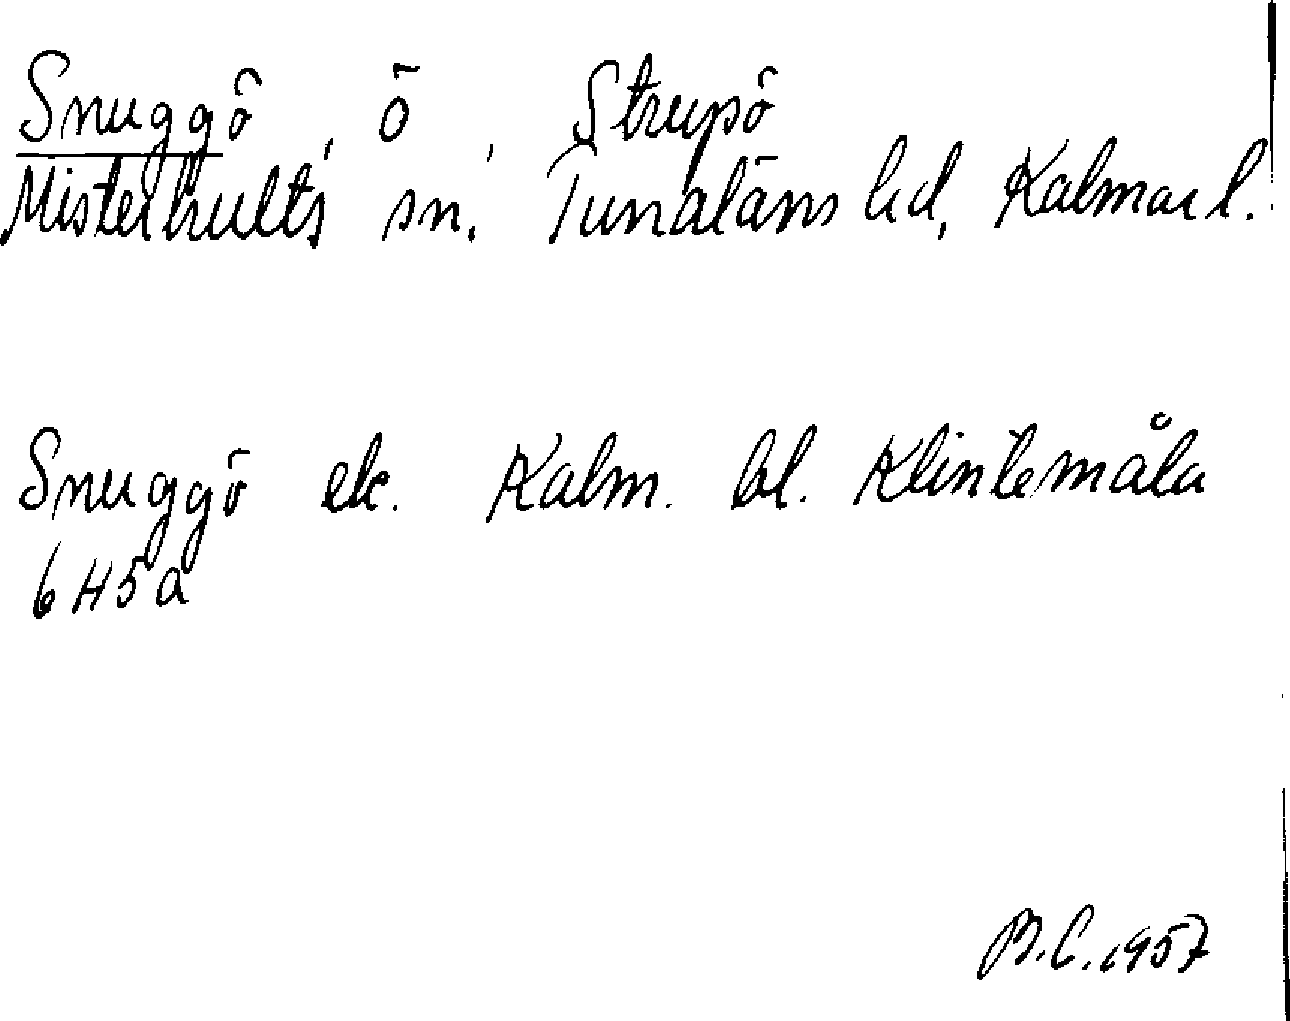 Snuggö, ö, Strupö
Misterhults sn, Tunaläns hd, Kalmar l.
Snuggö ek. Kalm. bl. Klintemåla
6H5a
B.C. 1957